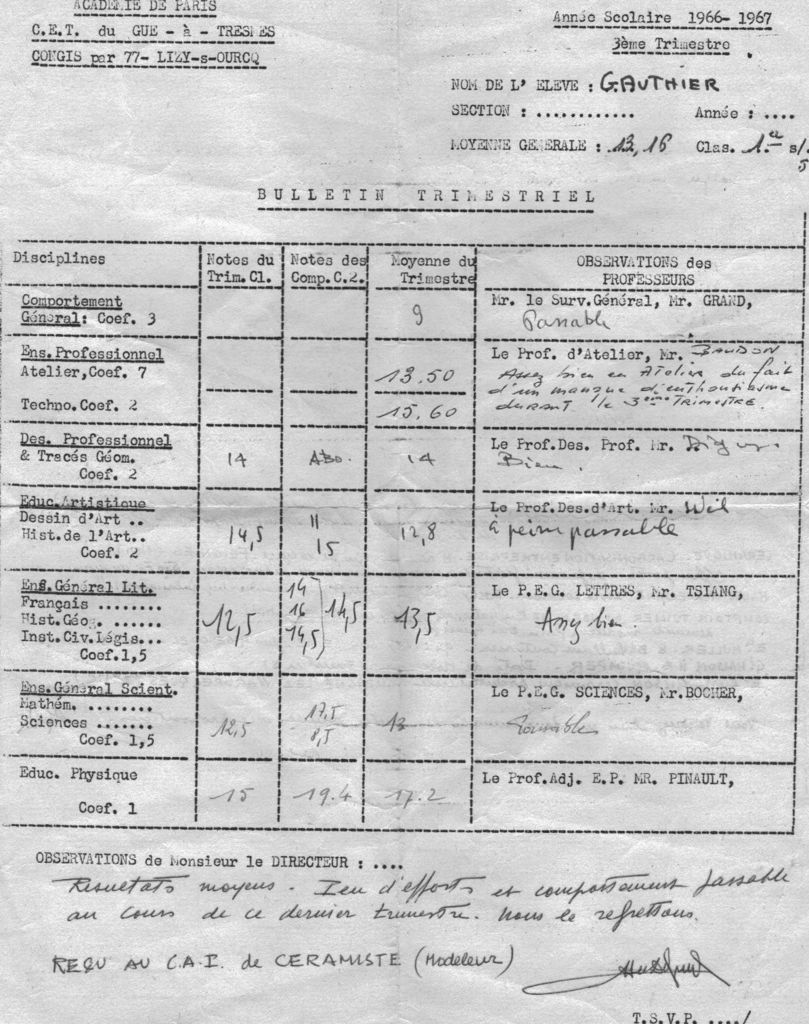 ACADEMIE DE PARIS
C.E.T. du GUE - à - TRESMES
CONGIS par 77- LIZY-s-OURCQ
Année Scolaire 1966- 1967
3ème Trimestre
NOM DE L' ELEVE : GAUTHIER
SECTION : ............ Année : ....
MOYENNE GENERALE : 13,16 Clas. 1.er s/. 5
BULLETIN TRIMESTRIEL
Disciplines
Notes du Trim.Cl.
Notes des Comp.C.2.
Moyenne du Trimestre
OBSERVATIONS des PROFESSEURS
Comportement
Général: Coef. 3
9
Mr. le Surv.Général, Mr. GRAND,
Passable
Ens.Professionnel
Atelier,Coef. 7
13.50
Techno.Coef. 2
15.60
Le Prof. d'Atelier, Mr.
Assez bien en Atelier du fait
d'un manque d'enthousiasme
durant le 3ème TRIMESTRE.
Des. Professionnel
& Tracés Géom.
Coef. 2
14 ABS. 14
Le Prof.Des. Prof. Mr.
Bien.
Educ.Artistique
Dessin d'Art ..
Hist.de l'Art..
Coef. 2
14,5
11
15
12,8
Le Prof.Des.d'Art. Mr.
à peine passable
Ens.Général Lit.
Français ........
Hist.Géog. ......
Inst.Civ.Légis...
Coef.1,5
12,5
14
16
14,5
14,5
13,5
Le P.E.G. LETTRES, Mr. TSIANG,
Assez bien.
Ens.Général Scient.
Mathém. ........
Sciences .......
Coef. 1,5
12,5
17,5
8,5
13
Le P.E.G. SCIENCES, Mr.BOCHER,
Educ. Physique
Coef. 1
15 19.4 17.2
Le Prof.Adj. E.P. MR. PINAULT,
OBSERVATIONS de Monsieur le DIRECTEUR : ....
Résultats moyens. Peu d'efforts et comportement passable
au cours de ce dernier trimestre. Nous le regrettons.
REÇU AU C.A.P. de CERAMISTE (Modeleur)
T.S.V.P. ..../